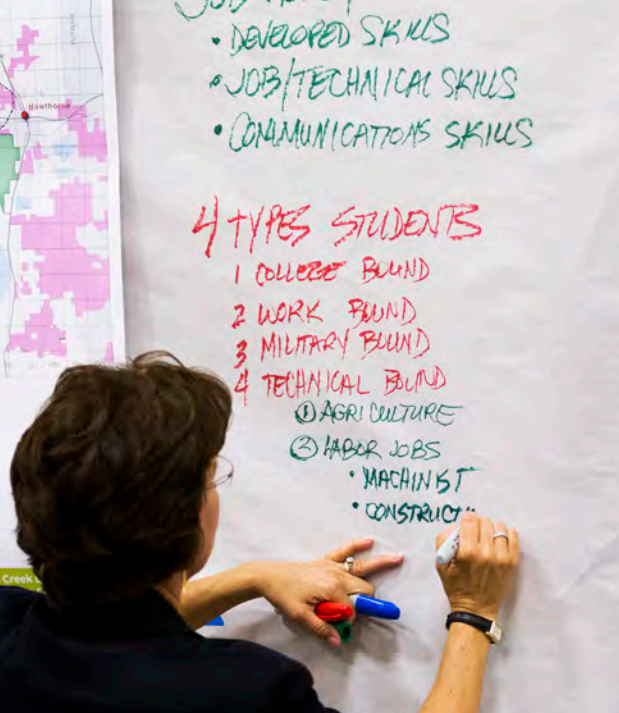 JOB
• DEVELOPED SKILLS
• JOB/TECHNICAL SKILLS
• COMMUNICATIONS SKILLS
4 TYPES STUDENTS
1 COLLEGE BOUND
2 WORK BOUND
3 MILITARY BOUND
4 TECHNICAL BOUND
① AGRICULTURE
② LABOR JOBS
• MACHINIST
• CONSTRUCT
Hawthorne
Creek